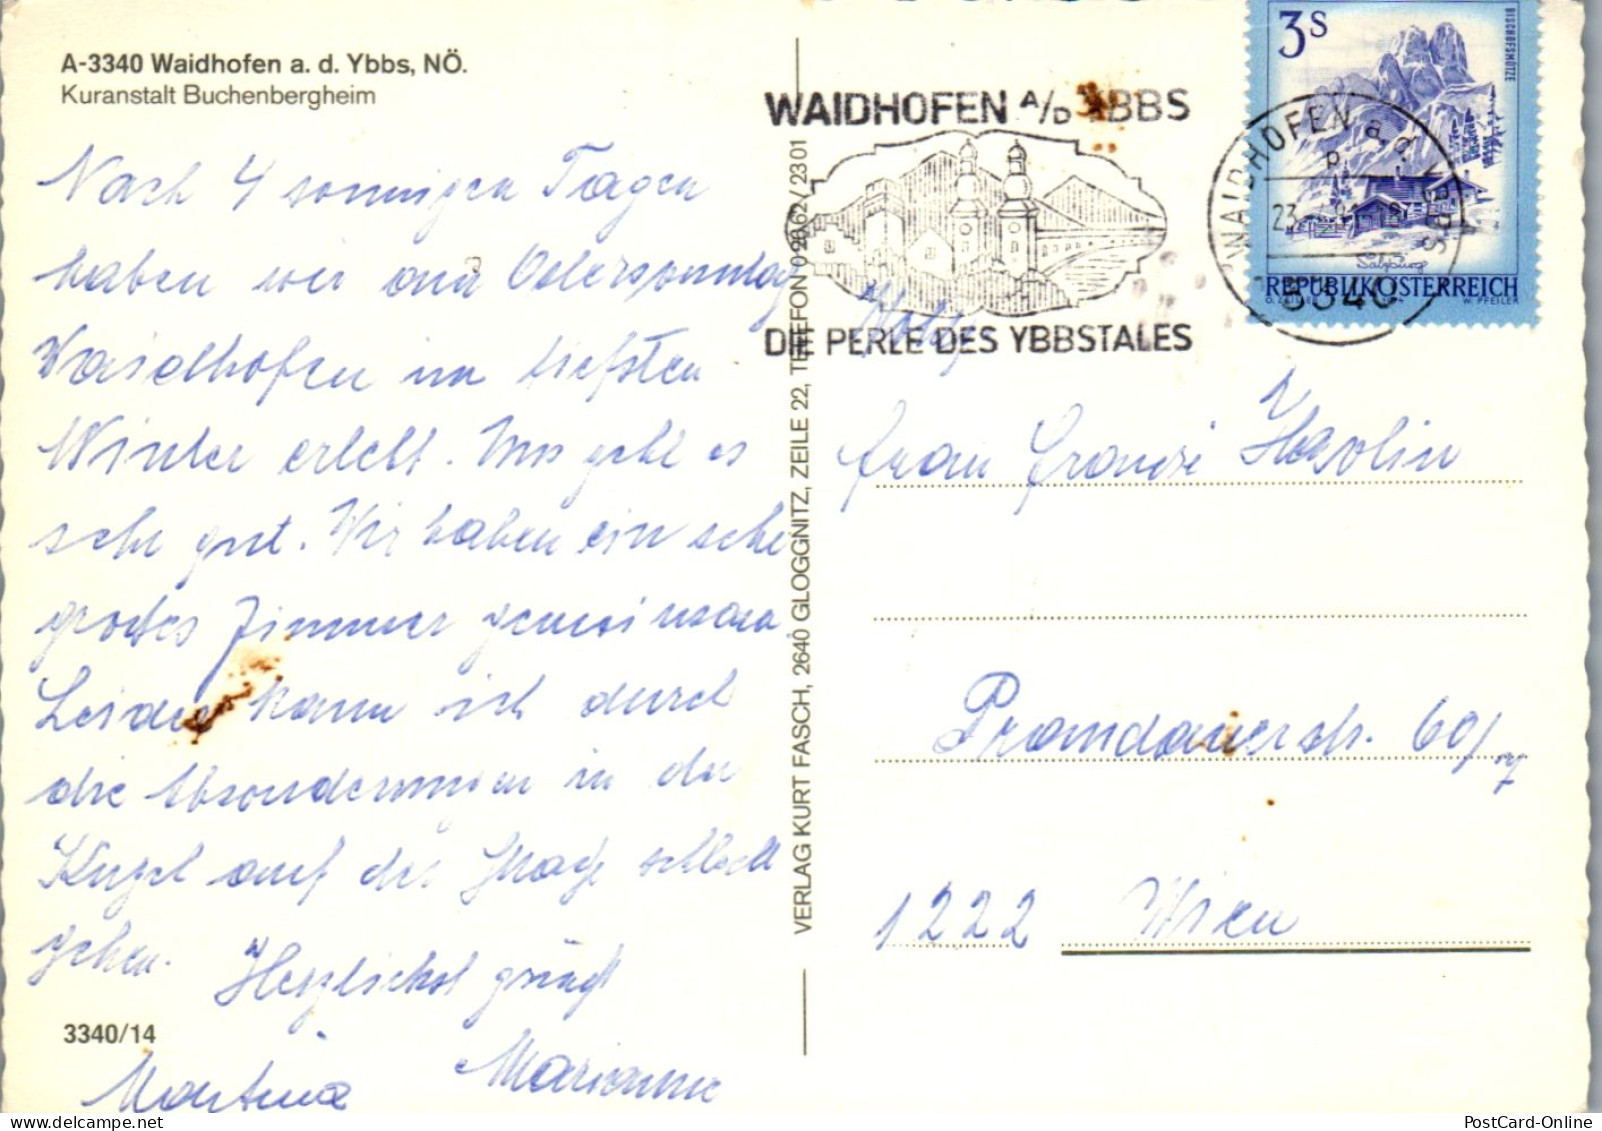 A-3340 Waidhofen a. d. Ybbs, NÖ.
Kuranstalt Buchenbergheim
Nach 4 sonnigen Tagen
haben wir am Ostersonntag
Waidhofen im tiefsten
Winter erlebt. Uns geht es
sehr gut. Wir haben ein sehr
großes Zimmer gemeinsam.
Leider kann ich durch
die Absonderungen in der
Kugel auf der Waage schlecht
gehen.
Herzlichst grüßt
Martina Marianne
3340/14
VERLAG KURT FASCH, 2640 GLOGGNITZ, ZEILE 22, TELEFON 02662/2301
WAIDHOFEN A/D YBBS
DIE PERLE DES YBBSTALES
3S
BISCHOFSMÜTZE
Salzburg
REPUBLIK ÖSTERREICH
O. ZEILLER 1974 W. PFEILER
WAIDHOFEN a. d. YBBS
3340
Frau Franzi Havlin
Prandauerstr. 60/7
1222 Wien
PostCard-Online